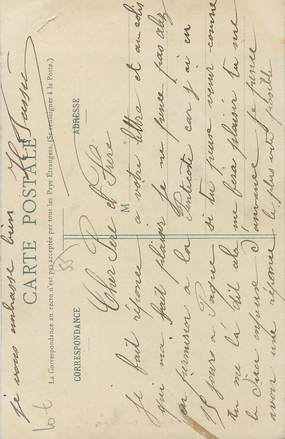 CARTE POSTALE
La Correspondance au recto n'est pas acceptée par tous les Pays Étrangers. (Se renseigner à la Poste.)
CORRESPONDANCE
ADRESSE
M
Cher Pere et Frere
Je fait réponse a votre lettre et au colis
qui ma fait plaisir je ne pence pas alez
en permission a la Pentecote car j'ai eu
15 jours a Paque si tu peuse venir comme
tu me la dit cela me fera plaisir tu me
la Dira d'avance je pence
avoir une réponse le plus vite posible
je vous embrasse bien